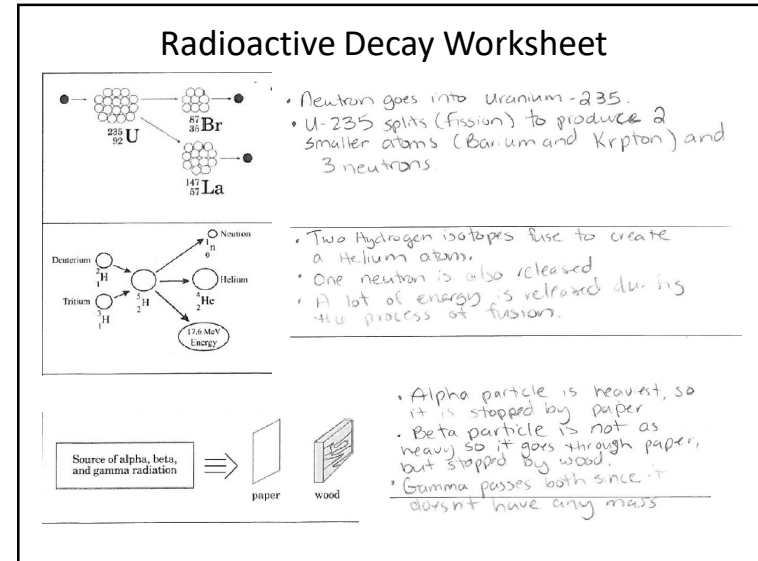 Radioactive Decay Worksheet
235
92 U
87
35 Br
147
57 La
• Neutron goes into Uranium-235.
• U-235 splits (fission) to produce 2
smaller atoms (Barium and Krpton) and
3 neutrons
Deuterium
2
H
1
Tritium
3
H
1
5
H
2
Neutron
1
n
0
Helium
4
He
2
17.6 MeV
Energy
• Two Hydrogen isotopes fuse to create
a Helium atom.
• One neutron is also released
• A lot of energy is released during
the process of fusion.
Source of alpha, beta,
and gamma radiation
paper
wood
• Alpha partcle is heaviest, so
it is stopped by paper
• Beta particle is not as
heavy so it goes through paper,
but stopped by wood.
• Gamma passes both since it
doesnt have any mass